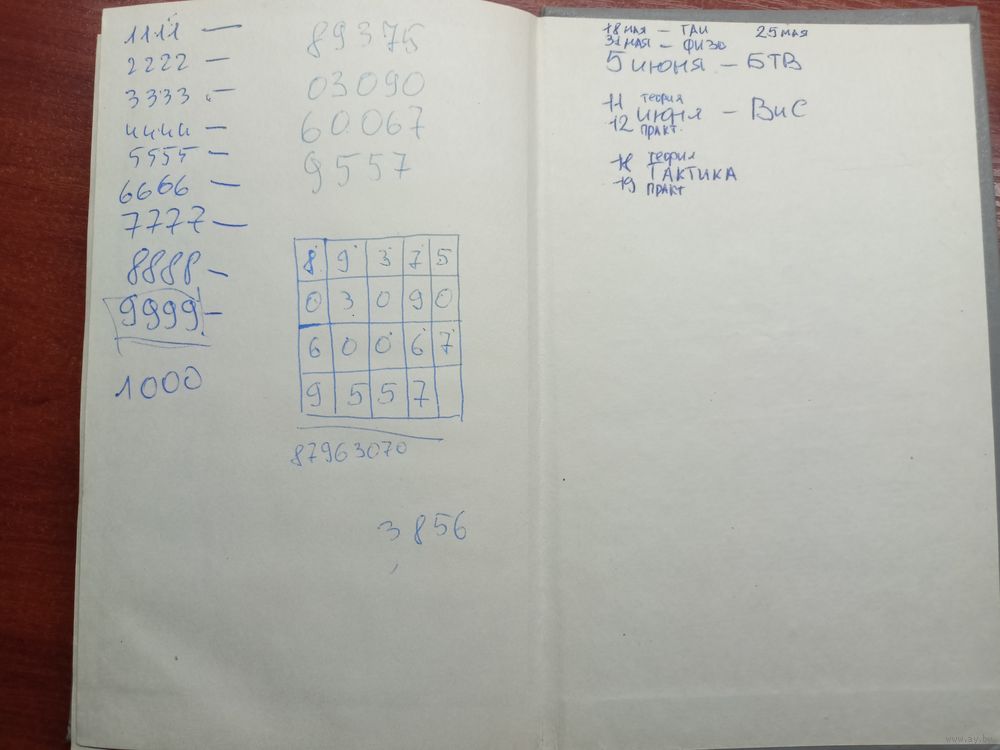 1111 —
2222 —
3333 —
4444 —
5555 —
6666 —
7777 —
8888 —
9999 —
1000
89375
03090
60067
9557
8 9 3 7 5
0 3 0 9 0
6 0 0 6 7
9 5 5 7
87963070
3856
18 мая — ГАИ 25 мая
31 мая — ФИЗО
5 июня — БТВ
11 теория
12 июня — ВиС
практ.
18 теория
ТАКТИКА
19 практ
www.ay.by